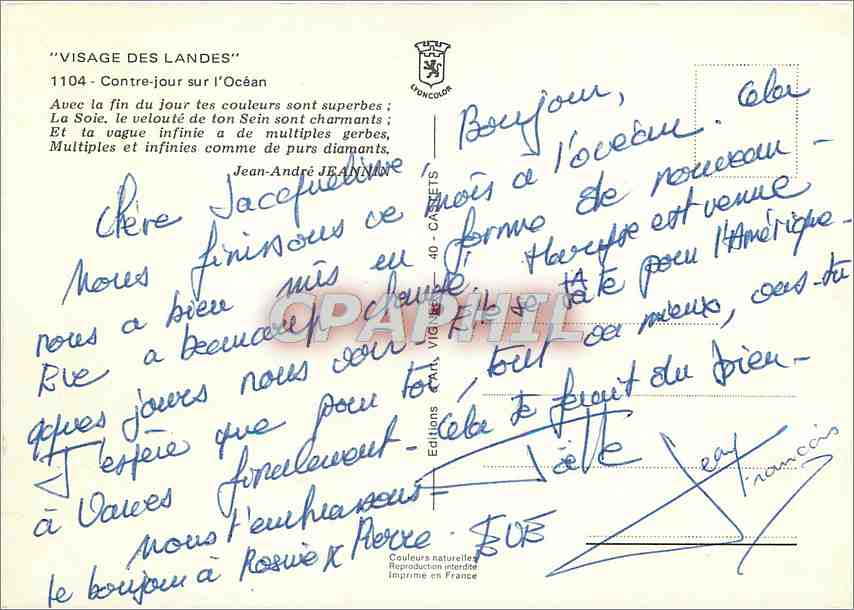 "VISAGE DES LANDES"
1104 - Contre-jour sur l'Océan
Avec la fin du jour tes couleurs sont superbes ;
La Soie, le velouté de ton Sein sont charmants ;
Et ta vague infinie a de multiples gerbes,
Multiples et infinies comme de purs diamants.
Jean-André JEANNIN
LYONCOLOR
Bonjour,
Chère Jacqueline,
Nous finissons ce mois à l'océan. Cela
nous a bien mis en forme de nouveau -
Eve a beaucoup est venue
qques jours nous voir. Elle se tâte pour l'Amérique -
J'espère que pour toi, tout va mieux,
à Vannes finalement - Cela te ferait du bien -
Nous t'embrassons - Joëlle
Jean François
le bonjour à Rosine x Pierre. EVE
Editions d'Art VIGNES - 40 - CASTETS
CPAPHIL
Couleurs naturelles
Reproduction interdite
Imprimé en France